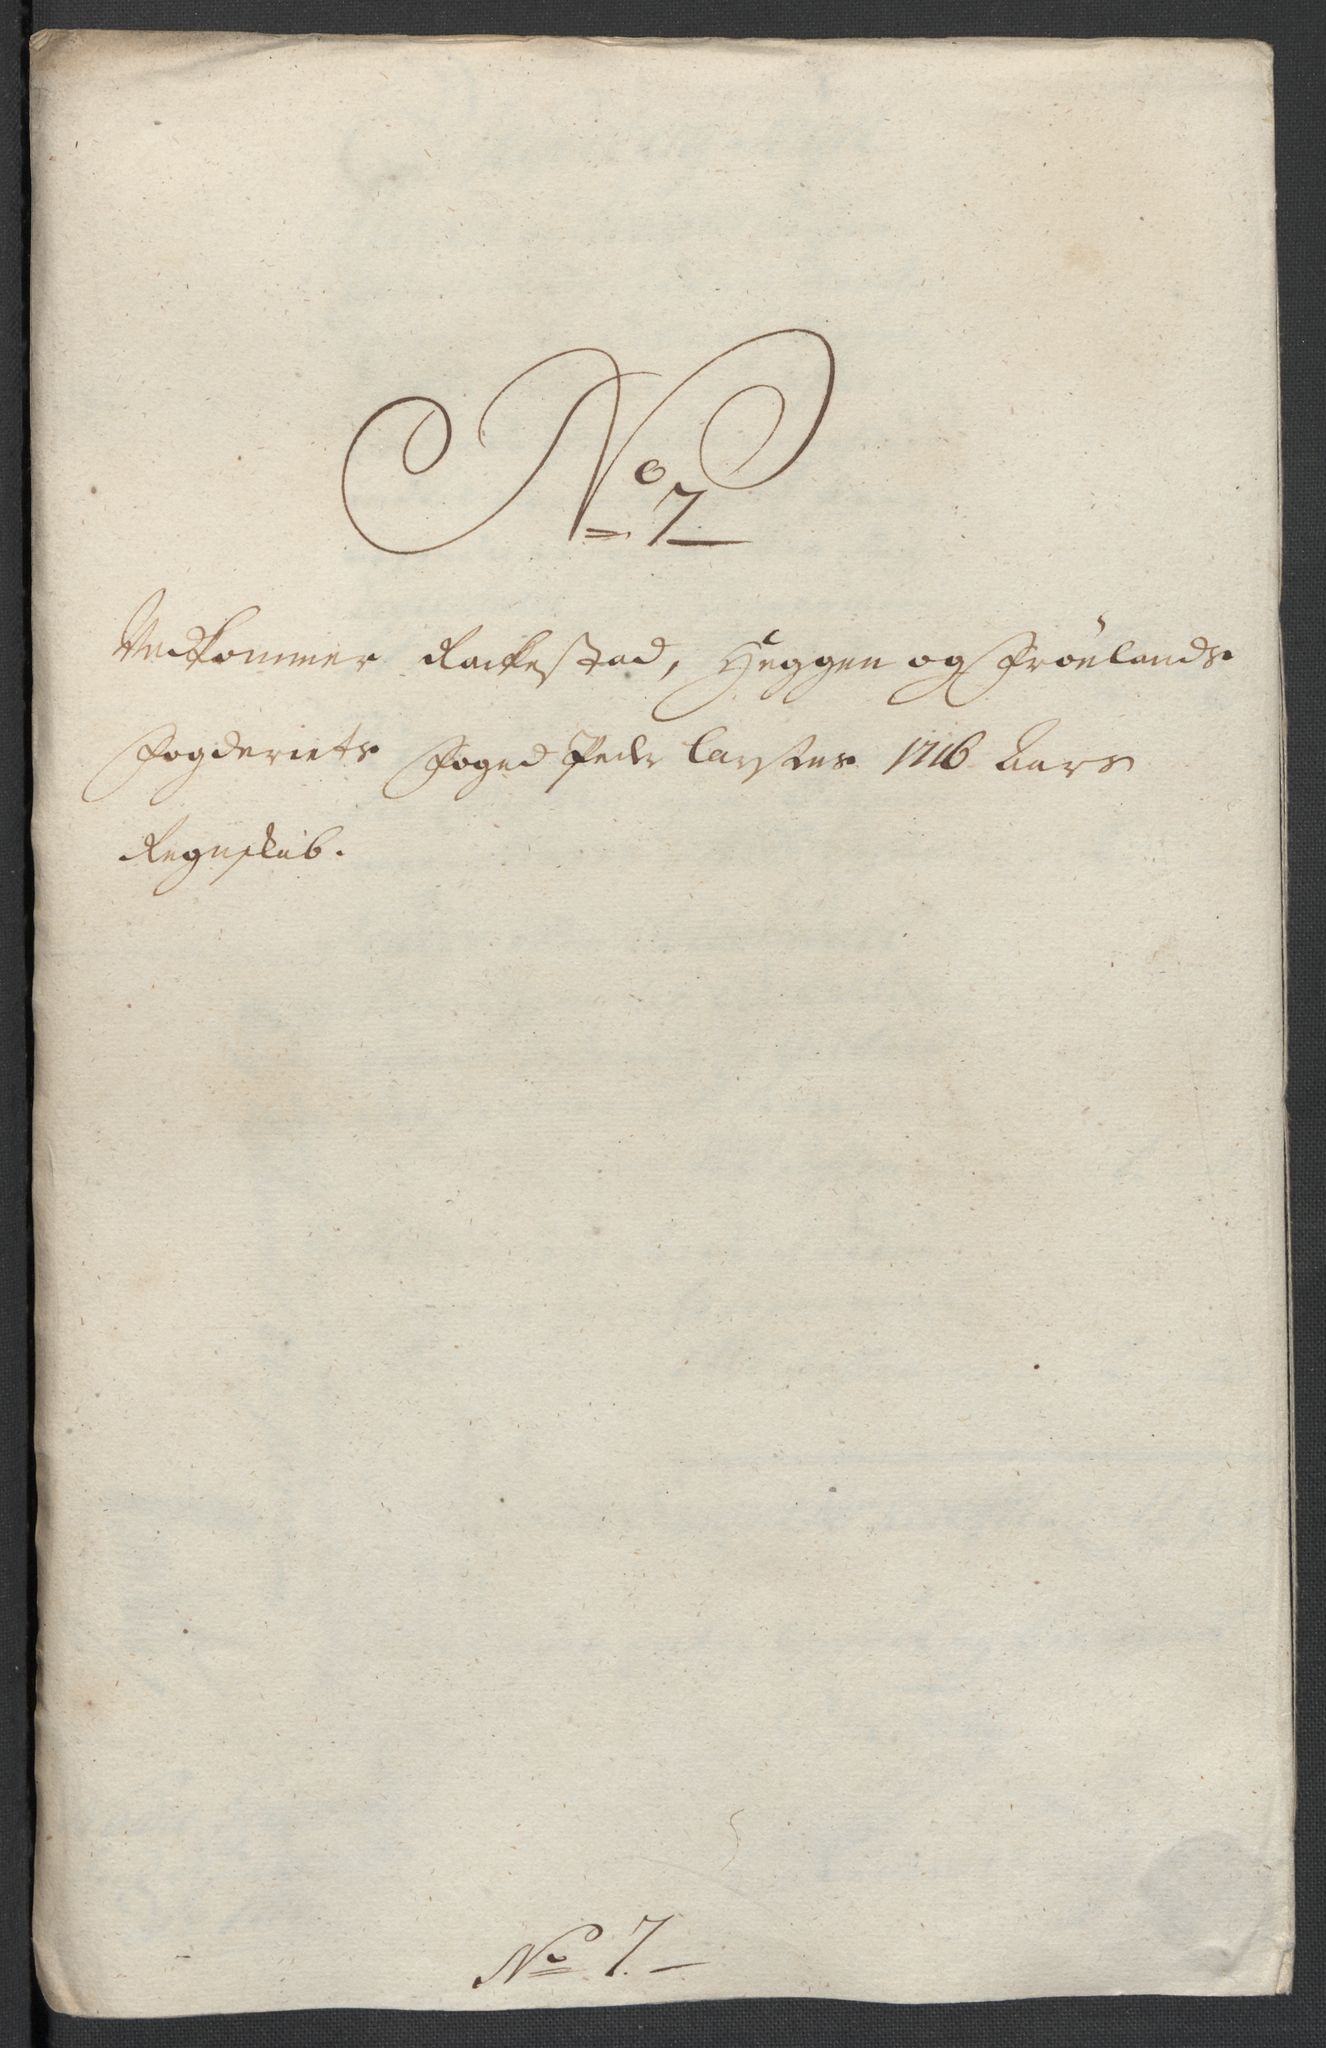 No 7
Vedkommer Rackestad, Heggen og Frölands
Fogderiets Foged Peder Carstens 1716 Aars
Regnskab.
No 7